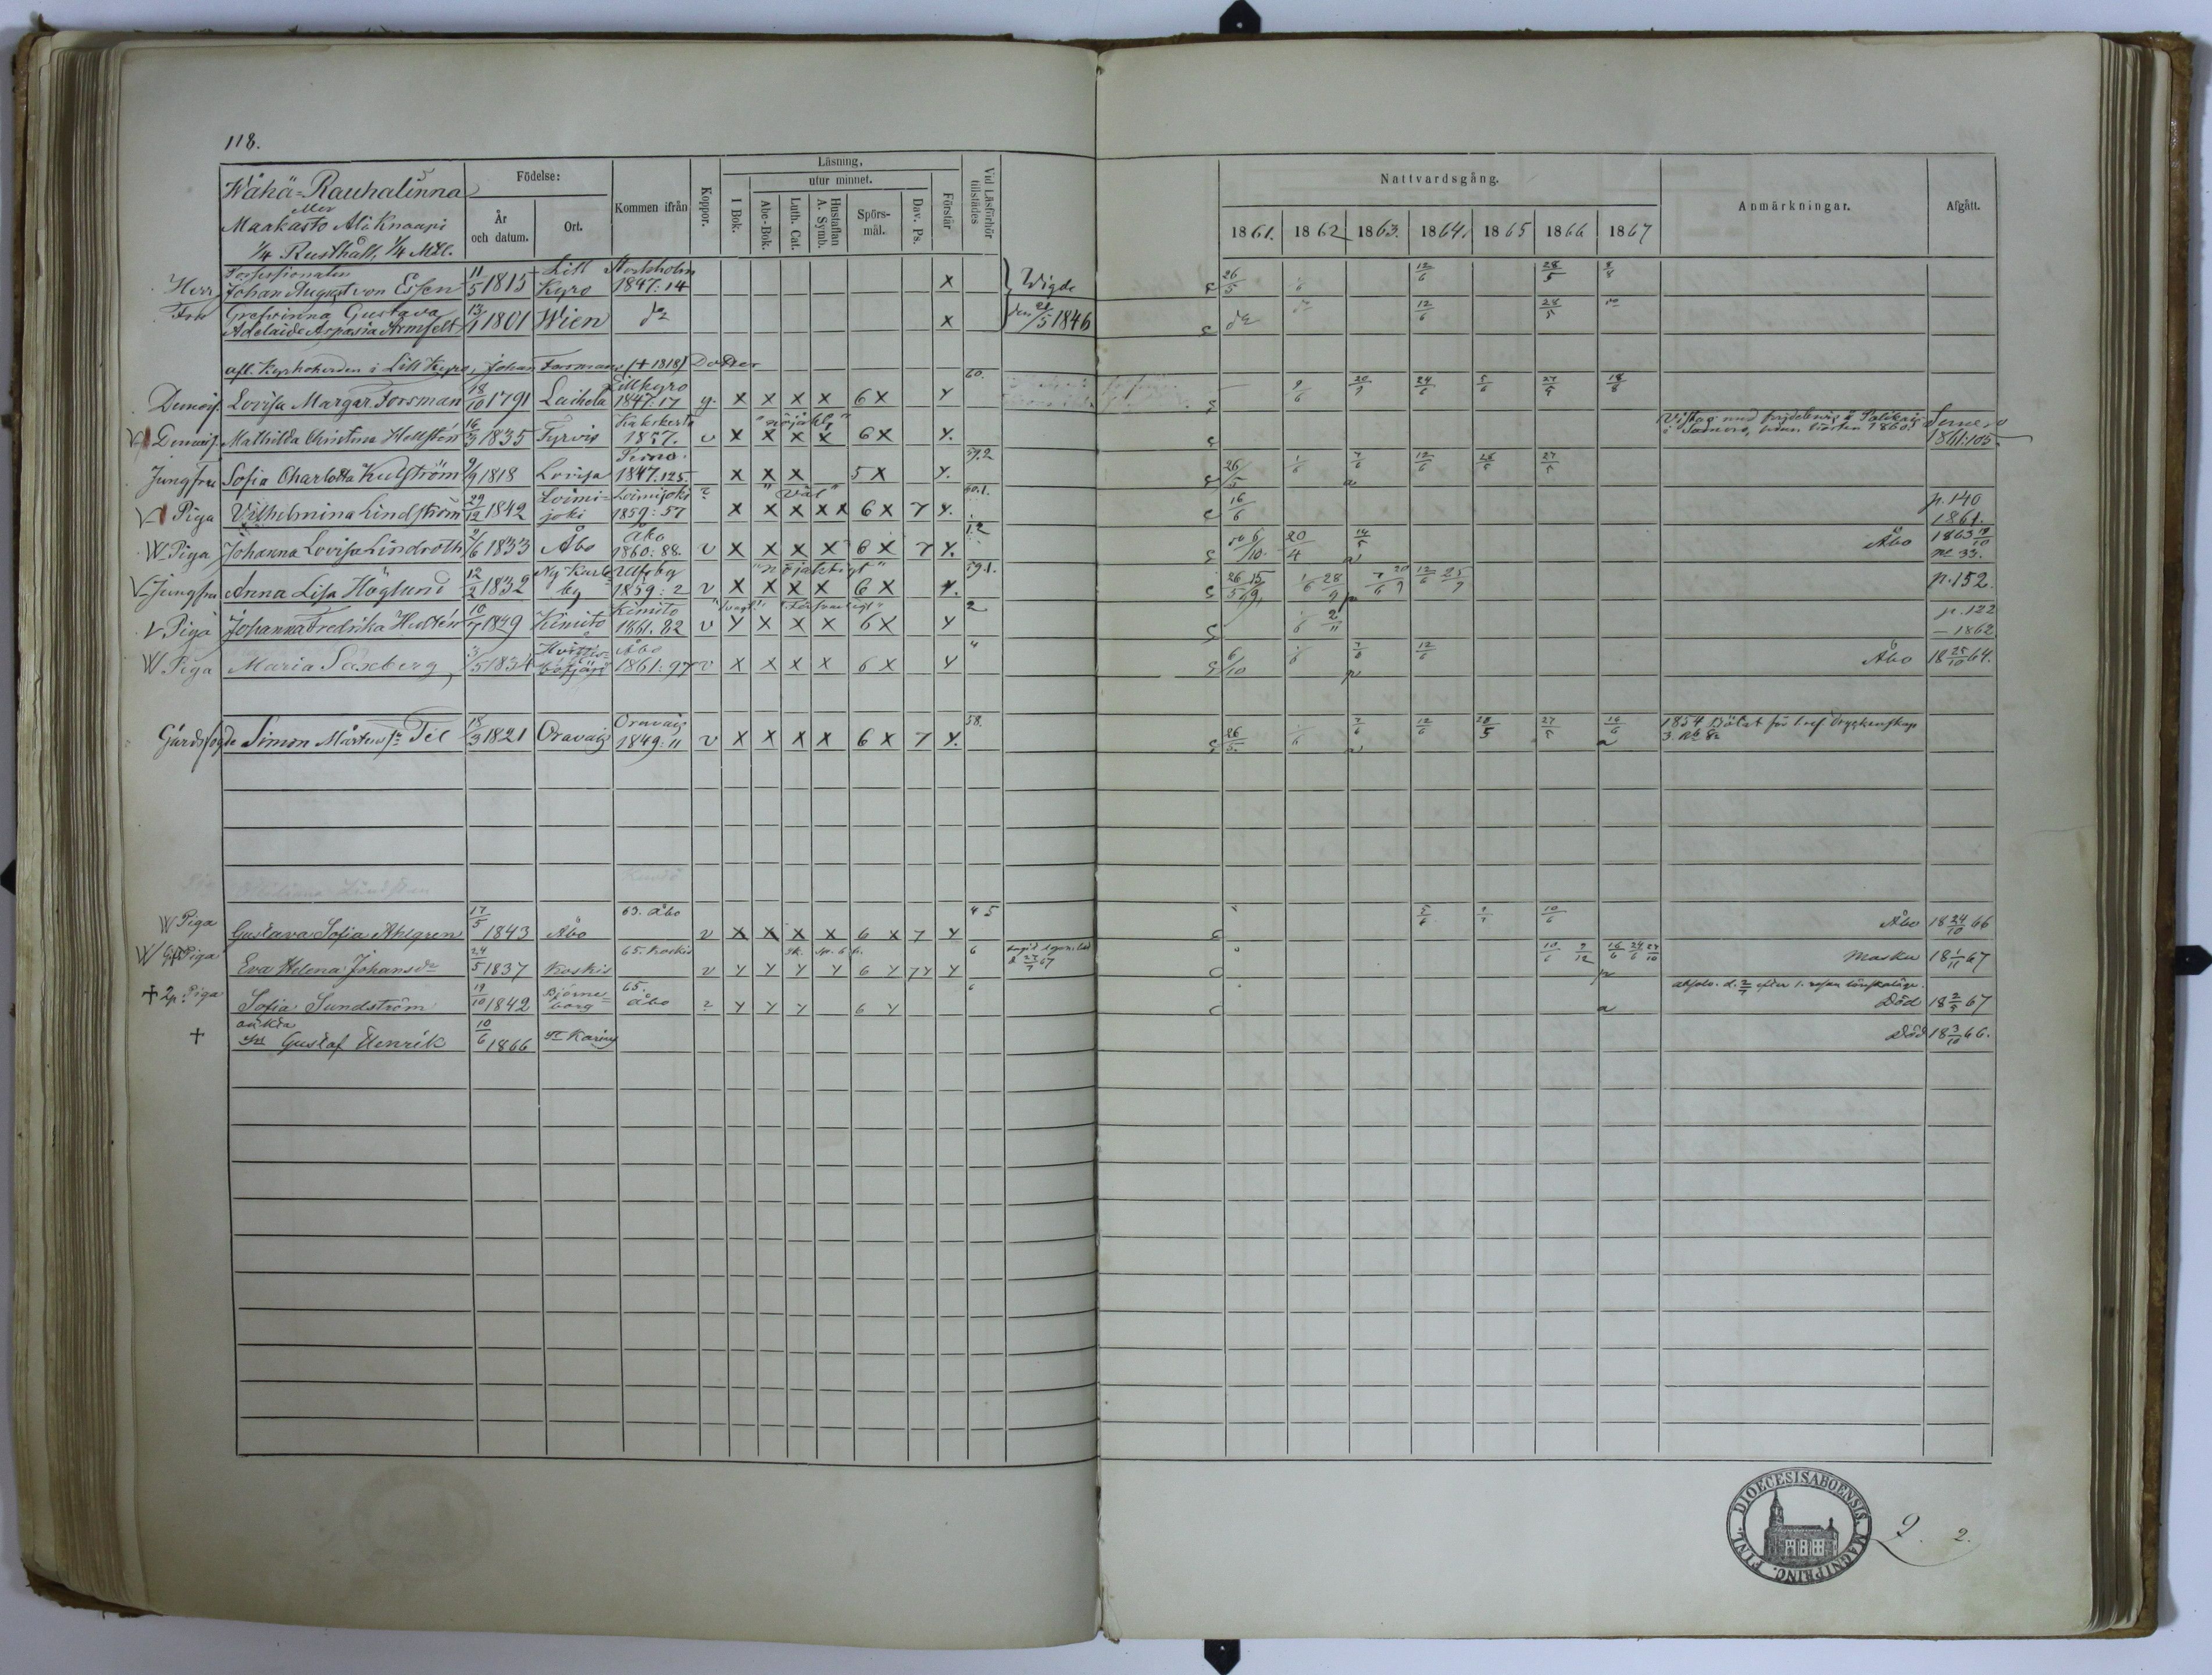 118.
Wähä-Rauhalinna
eller
Markasto Ali Knaapi
1/4 Rusthåll, 1/4 Mtl.
Födelse:
År och datum.
Ort.
Kommen ifrån
Koppor.
Läsning,
utur minnet.
I Bok.
Abc-Bok.
Luth. Cat.
Hustaflan A. Symb.
Spörsmål.
Dav. Ps.
Förstår
Vid Läsförhör tillstädes
Nattvardsgång.
1861. 1862 1863. 1864. 1865 1866 1867
Anmärkningar.
Afgått.
Herr Johan August von Essen 11/5 1815 Lill Kyro Stockholm 1847:14 X } Wigde 26/5 12/6 28/5
Fru Grefvinna Gustava Adelaide Aspasia Armfelt 1801 Wien d:o X den 21/5 1846 d:o 12/6 28/5
afl. Kyrkoherden i Lill Kyro, Johan Forsmans († 1818) Dotter
Demois. Lovisa Margar. Forsman 18/10 1791 Laihela Lillkyro 1847.17 y. X X X X 6 X Y 60. 24/6 27/5 18/8
V Demois. Mathilda Christina Hellstén 16/3 1835 Tyrvis 1857. v X X X X 6 X Y. Somero 1861:105
Jungfru Sofia Charlotta 9/9 1818 Lovisa Perno 1847.125. X X X 5 X Y. 59.2 26/5 1/6 7/6 12/6 27/5
V Piga Vilhelmina Lindström 29/12 1842 Loimijoki Loimijoki 1859:57 ? "väl" X X X X X 6 X 7 Y. 60.1. 16/6 p. 140 1861.
W Piga Johanna Lovisa Lindroth 2/6 1833 Åbo Åbo 1860:88. v X X X X 6 X 7 Y. 1.2 6/10. 20/4 14/5 Åbo 1863 No 33.
V Jungfru Anna Lisa Höglund 12/2 1832 Ny Karleby Ulfsby 1859:2 v "nöjaktigt" X X X X 6 X Y. 59.1. 26/5 15/9 1/6 28/9 7/6 20/9 12/6 25/9 p. 152.
V Piga Johanna Fredrika Hultén 10/7 1849 Kimito Kimito 1861.82 v Y X X X 6 X Y 2 2/11 p. 122 – 1862
W Piga Maria Saxberg 3/5 1834 Åbo 1861:97 v X X X X 6 X Y 6/10 7/6 12/6 Åbo 18 25/10 64.
Gårdsfogde Simon Mårtens s:n Til 18/3 1821 Oravais Oravais 1849:11 v X X X X 6 X 7 Y. 58. 26/5. 7/6 12/6 28/5 27/5 16/6 1854 Bötat för 1 ref dryckenskap
W Piga Gustava Sofia Ahlgren 17/5 1843 Åbo 63. Åbo v X X X X 6 X 7 Y 4 5 5/6 10/6 Åbo 18 24/10 66
W Piga Eva Helena Johansd:r 24/5 1837 Koskis 65. Koskis v Y Y Y Y 6 Y 7 Y Y 6 10/6 9/12 16/6 Masku 18 1/11 67
† Piga Sofia Sundström 19/10 1842 Björneborg 65. Åbo ? Y Y Y 6 Y 6 Död 18 67
† oäkta Gustaf Henrik 10/6 1866 S:t Karins Död 18 3/10 66.
FINL. DIOECESIS ABOENSIS. MAGNI PRINC.
2.